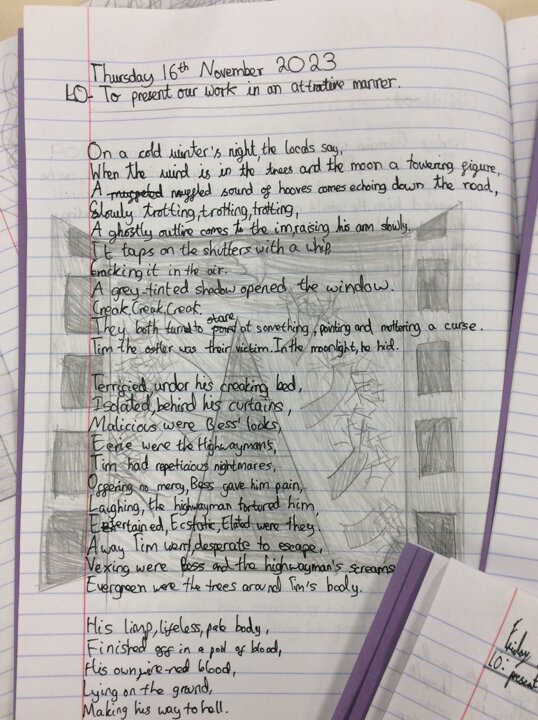 Thursday 16th November 2023
LO- To present our work in an attractive manner.
On a cold winter's night, the locals say,
When the wind is in the trees and the moon a towering figure,
A muffled sound of hooves comes echoing down the road,
Slowly trotting, trotting, trotting,
A ghostly outline comes to the inn, raising his arm slowly.
It taps on the shutters with a whip
cracking it in the air.
A grey-tinted shadow opened the window.
Creak. Creak. Creak.
They both turned to stare at something, pointing and muttering a curse.
Tim the ostler was their victim. In the moonlight, he hid.
Terrified, under his creaking bed,
Isolated, behind his curtains,
Malicious were Bess' looks,
Eerie were the Highwayman's,
Tim had repeticious nightmares,
Offering no mercy, Bess gave him pain,
Laughing, the highwayman tortured him,
Entertained, Ecstatic, Elated were they.
Away Tim went, desperate to escape,
Vexing were Bess and the highwayman's screams
Evergreen were the trees around Tim's body.
His limp, lifeless, pale body,
Finished off in a pool of blood,
His own wine-red blood,
Lying on the ground,
Making his way to hell.
Friday
LO: present